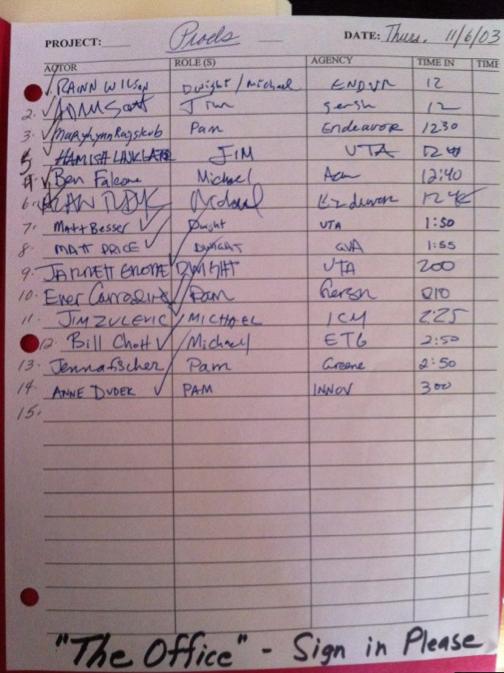 PROJECT: Prods DATE: Thurs. 11/6/03
ACTOR ROLE(S) AGENCY TIME IN TIME
✓ RAINN WILSON Dwight / Michael ENDVR 12
2. ✓ ADAM Scott Jim gersh 12
3. ✓ MaryLynn Rajskub Pam Endeavor 1230
HAMISH LINKLATER JIM UTA
✓ Ben Falcone Michael 12:40
6. ALAN Michael Endeavor
7. Matt Besser ✓ Dwight UTA 1:50
8. MATT PRICE ✓ DWIGHT 1:55
9. JARRETT DWIGHT UTA 200
10. Ever Carradine ✓ Pam Gersh 210
11. JIM ZULEVIC ✓ MICHAEL ICM 2:25
12. Bill Chott ✓ Michael ETG 2:50
13. Jenna fischer Pam Greene 2:50
14. ANNE DUDEK ✓ PAM INNOV 300
15.
"The Office" - Sign in Please